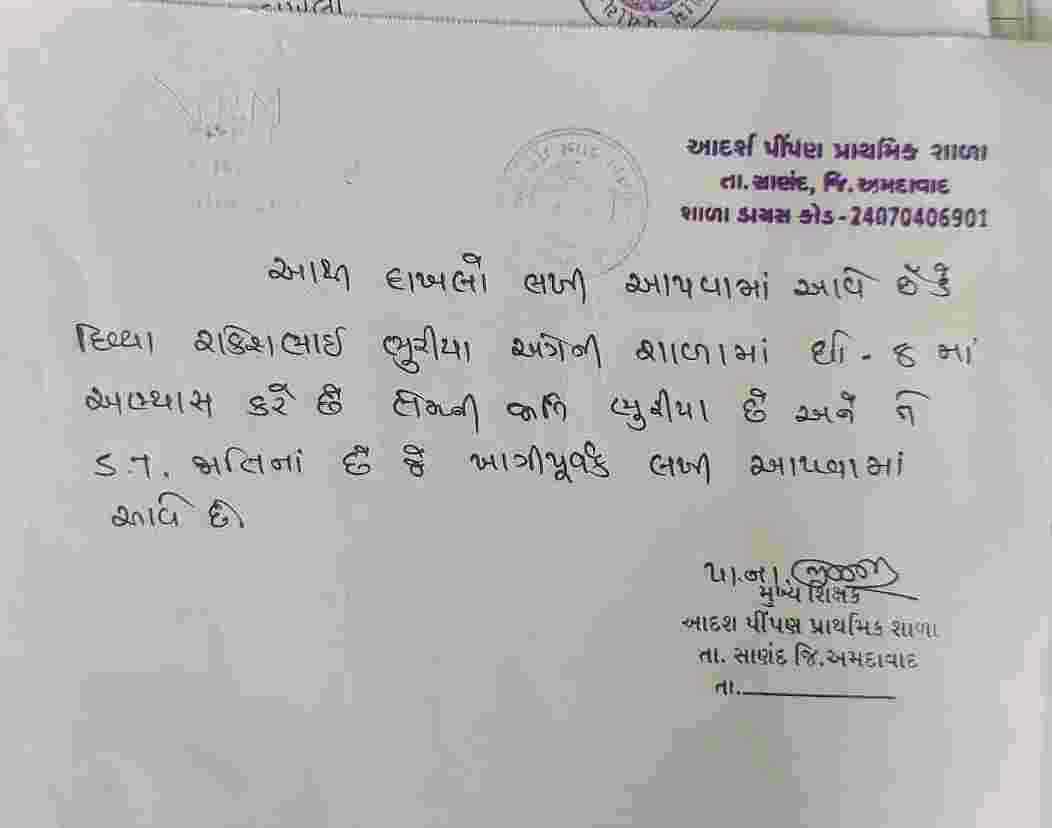 આદર્શ પીંપણ પ્રાથમિક શાળા
તા.સાણંદ, જિ.અમદાવાદ
શાળા ડાયસ કોડ - 24070406901
આથી દાખલો લખી આપવામાં આવે છે કે
દિવ્યા રાકેશભાઈ ભુરીયા અત્રેની શાળામાં ધો - ૬ માં
અભ્યાસ કરે છે તેમની જાતિ ભુરીયા છે અને તે
S.T. જાતિનાં છે જે ખાત્રીપૂર્વક લખી આપવામાં
આવે છે
મુખ્ય શિક્ષક
આદશ પીંપણ પ્રાથમિક શાળા
તા. સાણંદ જિ.અમદાવાદ
તા.